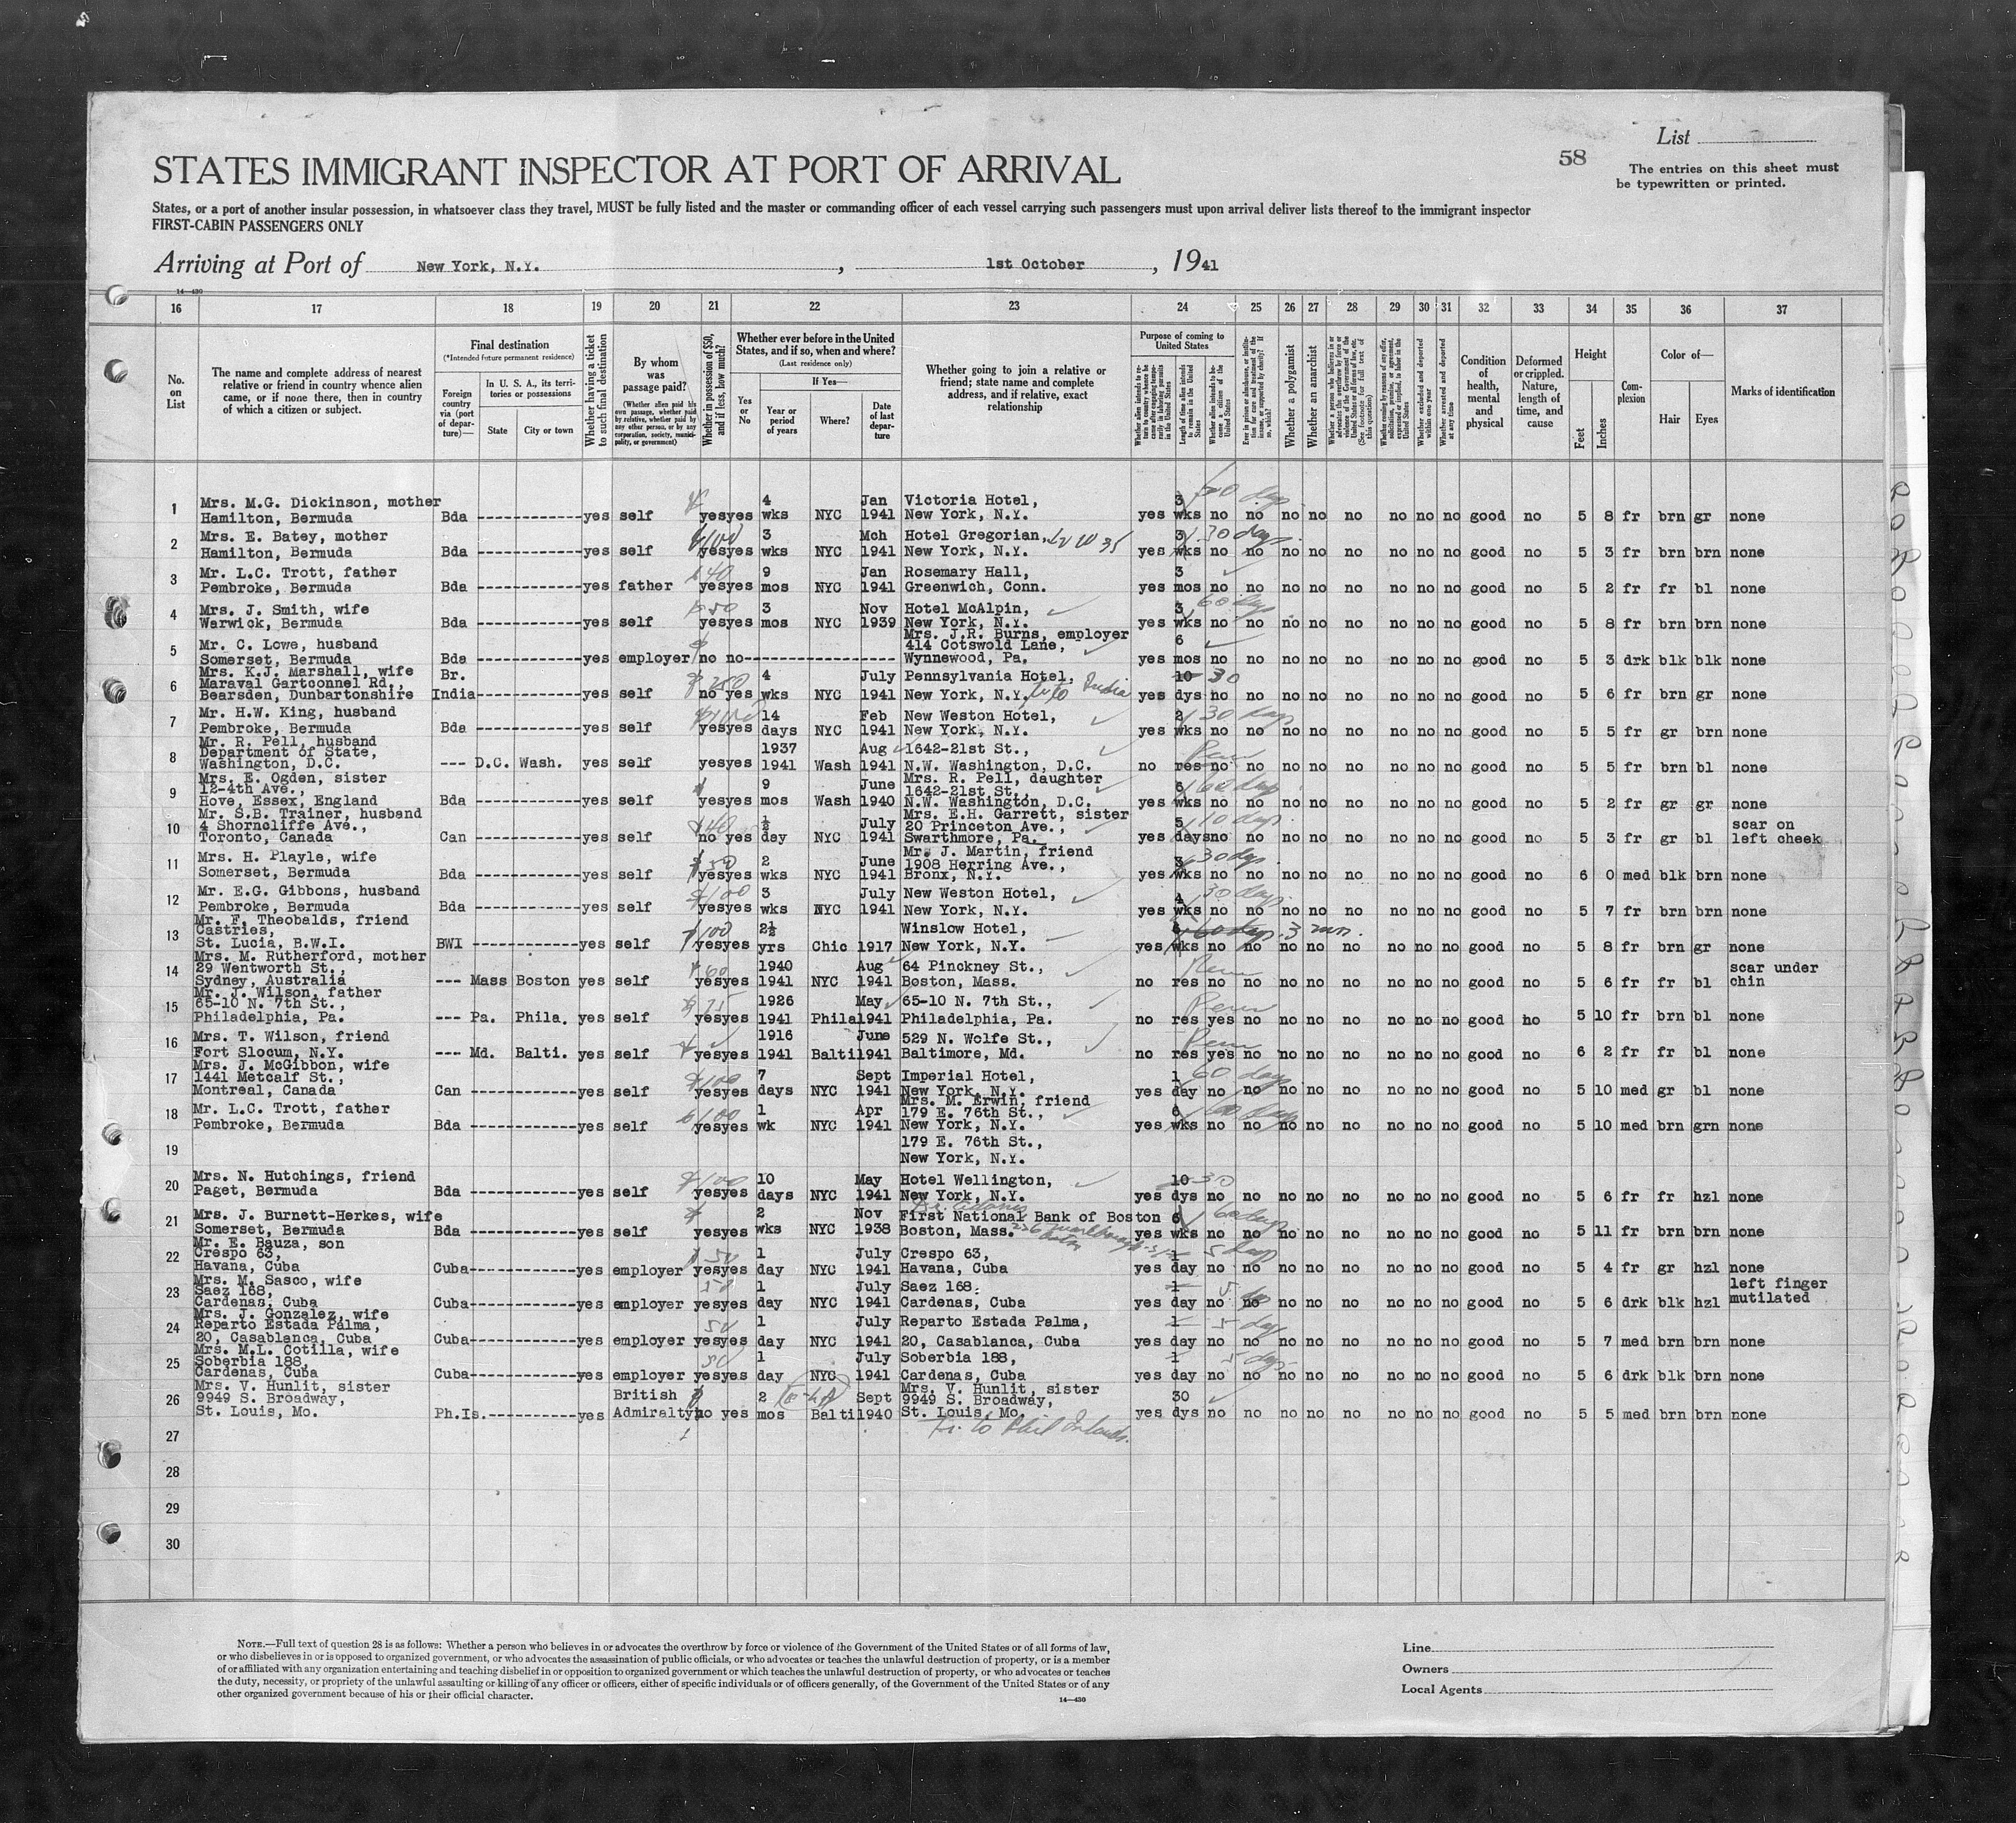 List
58
The entries on this sheet must
be typewritten or printed.
STATES IMMIGRANT INSPECTOR AT PORT OF ARRIVAL
States, or a port of another insular possession, in whatsoever class they travel, MUST be fully listed and the master or commanding officer of each vessel carrying such passengers must upon arrival deliver lists thereof to the immigrant inspector
FIRST-CABIN PASSENGERS ONLY
Arriving at Port of New York, N.Y. , 1st October , 1941
14—430
16 17 18 19 20 21 22 23 24 25 26 27 28 29 30 31 32 33 34 35 36 37
No. on List
The name and complete address of nearest relative or friend in country whence alien came, or if none there, then in country of which a citizen or subject.
Final destination
(*Intended future permanent residence)
Foreign country via (port of departure)—
In U. S. A., its territories or possessions
State
City or town
Whether having a ticket to such final destination
By whom was passage paid?
(Whether alien paid his own passage, whether paid by relative, whether paid by any other person, or by any corporation, society, municipality, or government)
Whether in possession of $50, and if less, how much?
Whether ever before in the United States, and if so, when and where?
(Last residence only)
Yes or No
If Yes—
Year or period of years
Where?
Date of last departure
Whether going to join a relative or friend; state name and complete address, and if relative, exact relationship
Purpose of coming to United States
Whether alien intends to return to country whence he came after engaging temporarily in laboring pursuits in the United States
Length of time alien intends to remain in the United States
Whether alien intends to become a citizen of the United States
Ever in prison or almshouse, or institution for care and treatment of the insane, or supported by charity? If so, which?
Whether a polygamist
Whether an anarchist
Whether a person who believes in or advocates the overthrow by force or violence of the Government of the United States or all forms of law, etc. (See footnote for full text of this question)
Whether coming by reasons of any offer, solicitation, promise, or agreement, expressed or implied, to labor in the United States
Whether excluded and deported within one year
Whether arrested and deported at any time
Condition of health, mental and physical
Deformed or crippled. Nature, length of time, and cause
Height
Feet
Inches
Complexion
Color of—
Hair
Eyes
Marks of identification
1 Mrs. M.G. Dickinson, mother 4 Jan Victoria Hotel, 3
Hamilton, Bermuda Bda ------------yes self yesyes wks NYC 1941 New York, N.Y. yes wks no no no no no no no no good no 5 8 fr brn gr none
2 Mrs. E. Batey, mother 3 Mch Hotel Gregorian, 3 30 days
Hamilton, Bermuda Bda ------------yes self $100 yesyes wks NYC 1941 New York, N.Y. yes wks no no no no no no no no good no 5 3 fr brn brn none
3 Mr. L.C. Trott, father 9 Jan Rosemary Hall, 3
Pembroke, Bermuda Bda ------------yes father 40 yesyes mos NYC 1941 Greenwich, Conn. yes mos no no no no no no no no good no 5 2 fr fr bl none
4 Mrs. J. Smith, wife 3 Nov Hotel McAlpin, 3 60 days
Warwick, Bermuda Bda ------------yes self 50 yesyes mos NYC 1939 New York, N.Y. yes wks no no no no no no no no good no 5 8 fr brn brn none
5 Mr. C. Lowe, husband Mrs. J.R. Burns, employer 6
414 Cotswold Lane,
Somerset, Bermuda Bda ------------yes employer no no----------------- Wynnewood, Pa. yes mos no no no no no no no no good no 5 3 drk blk blk none
6 Mrs. K.J. Marshall, wife Br. 4 July Pennsylvania Hotel, 10 30
Maraval Gartconnel Rd.,
Bearsden, Dunbartonshire India------------yes self $250 no yes wks NYC 1941 New York, N.Y. to India yes dys no no no no no no no no good no 5 6 fr brn gr none
7 Mr. H.W. King, husband 14 Feb New Weston Hotel, 2 30 days
Pembroke, Bermuda Bda ------------yes self yesyes days NYC 1941 New York, N.Y. yes wks no no no no no no no no good no 5 5 fr gr brn none
8 Mr. R. Pell, husband 1937 Aug 1642-21st St., Perm
Department of State,
Washington, D.C. --- D.C. Wash. yes self yesyes 1941 Wash 1941 N.W. Washington, D.C. no res no no no no no no no no good no 5 5 fr brn bl none
9 Mrs. E. Ogden, sister 9 June Mrs. R. Pell, daughter 6 60 days
12-4th Ave., 1642-21st St.,
Hove, Essex, England Bda ------------yes self yesyes mos Wash 1940 N.W. Washington, D.C. yes wks no no no no no no no no good no 5 2 fr gr gr none
10 Mr. S.B. Trainer, husband ½ July Mrs. E.H. Garrett, sister 5 10 days scar on
4 Shorncliffe Ave., 20 Princeton Ave.,
Toronto, Canada Can ------------yes self $40 no yes day NYC 1941 Swarthmore, Pa. yes days no no no no no no no no good no 5 3 fr gr bl left cheek
11 Mrs. H. Playle, wife 2 June Mr. J. Martin, friend 3 30 days
1908 Herring Ave.,
Somerset, Bermuda Bda ------------yes self $50 yesyes wks NYC 1941 Bronx, N.Y. yes wks no no no no no no no no good no 6 0 med blk brn none
12 Mr. E.G. Gibbons, husband 3 July New Weston Hotel, 4 30 days
Pembroke, Bermuda Bda ------------yes self $100 yesyes wks NYC 1941 New York, N.Y. yes wks no no no no no no no no good no 5 7 fr brn brn none
13 Mr. F. Theobalds, friend 2½ Winslow Hotel, 6 60 days 3 mon.
Castries,
St. Lucia, B.W.I. BWI ------------yes self $100 yesyes yrs Chic 1917 New York, N.Y. yes wks no no no no no no no no good no 5 8 fr brn gr none
14 Mrs. M. Rutherford, mother 1940 Aug 64 Pinckney St., Perm scar under
29 Wentworth St.,
Sydney, Australia --- Mass Boston yes self $60 yesyes 1941 NYC 1941 Boston, Mass. no res no no no no no no no no good no 5 6 fr fr bl chin
15 Mr. J. Wilson, father 1926 May 65-10 N. 7th St., Perm
65-10 N. 7th St.,
Philadelphia, Pa. --- Pa. Phila. yes self $75 yesyes 1941 Phila 1941 Philadelphia, Pa. no res yes no no no no no no no good no 5 10 fr brn bl none
16 Mrs. T. Wilson, friend 1916 June 529 N. Wolfe St., Perm
Fort Slocum, N.Y. --- Md. Balti. yes self yesyes 1941 Balti 1941 Baltimore, Md. no res yes no no no no no no no good no 6 2 fr fr bl none
17 Mrs. J. McGibbon, wife 7 Sept Imperial Hotel, 1 60 days
1441 Metcalf St.,
Montreal, Canada Can ------------yes self $100 yesyes days NYC 1941 New York, N.Y. yes day no no no no no no no no good no 5 10 med gr bl none
18 Mr. L.C. Trott, father 1 Apr Mrs. M. Erwin, friend 6 60 days
179 E. 76th St.,
Pembroke, Bermuda Bda ------------yes self $100 yesyes wk NYC 1941 New York, N.Y. yes wks no no no no no no no no good no 5 10 med brn grn none
19 179 E. 76th St.,
New York, N.Y.
20 Mrs. N. Hutchings, friend 10 May Hotel Wellington, 10 30
Paget, Bermuda Bda ------------yes self $100 yesyes days NYC 1941 New York, N.Y. yes dys no no no no no no no no good no 5 6 fr fr hzl none
21 Mrs. J. Burnett-Herkes, wife 2 Nov First National Bank of Boston 6 60 days
Somerset, Bermuda Bda ------------yes self yesyes wks NYC 1938 Boston, Mass. yes wks no no no no no no no no good no 5 11 fr brn brn none
22 Mr. E. Bauza, son 1 July Crespo 63, 1 5 days
Crespo 63,
Havana, Cuba Cuba------------yes employer $50 yesyes day NYC 1941 Havana, Cuba yes day no no no no no no no no good no 5 4 fr gr hzl none
23 Mrs. M. Sasco, wife 50 1 July Saez 168, 1 5 left finger
Saez 168,
Cardenas, Cuba Cuba------------yes employer yesyes day NYC 1941 Cardenas, Cuba yes day no no no no no no no no good no 5 6 drk blk hzl mutilated
24 Mrs. J. Gonzalez, wife 50 1 July Reparto Estada Palma, 1 5 day
Reparto Estada Palma,
20, Casablanca, Cuba Cuba------------yes employer yesyes day NYC 1941 20, Casablanca, Cuba yes day no no no no no no no no good no 5 7 med brn brn none
25 Mrs. M.L. Cotilla, wife 50 1 July Soberbia 188, 1 5 days
Soberbia 188,
Cardenas, Cuba Cuba------------yes employer yesyes day NYC 1941 Cardenas, Cuba yes day no no no no no no no no good no 5 6 drk blk brn none
26 Mrs. V. Hunlit, sister British 2 Sept Mrs. V. Hunlit, sister 30
9949 S. Broadway, 9949 S. Broadway,
St. Louis, Mo. Ph.Is.-----------yes Admiralty no yes mos Balti 1940 St. Louis, Mo. yes dys no no no no no no no no good no 5 5 med brn brn none
27 Tr. to Phil Islands.
28
29
30
NOTE.—Full text of question 28 is as follows: Whether a person who believes in or advocates the overthrow by force or violence of the Government of the United States or of all forms of law,
or who disbelieves in or is opposed to organized government, or who advocates the assassination of public officials, or who advocates or teaches the unlawful destruction of property, or is a member
of or affiliated with any organization entertaining and teaching disbelief in or opposition to organized government or which teaches the unlawful destruction of property, or who advocates or teaches
the duty, necessity, or propriety of the unlawful assaulting or killing of any officer or officers, either of specific individuals or of officers generally, of the Government of the United States or of any
other organized government because of his or their official character.
14—430
Line
Owners
Local Agents